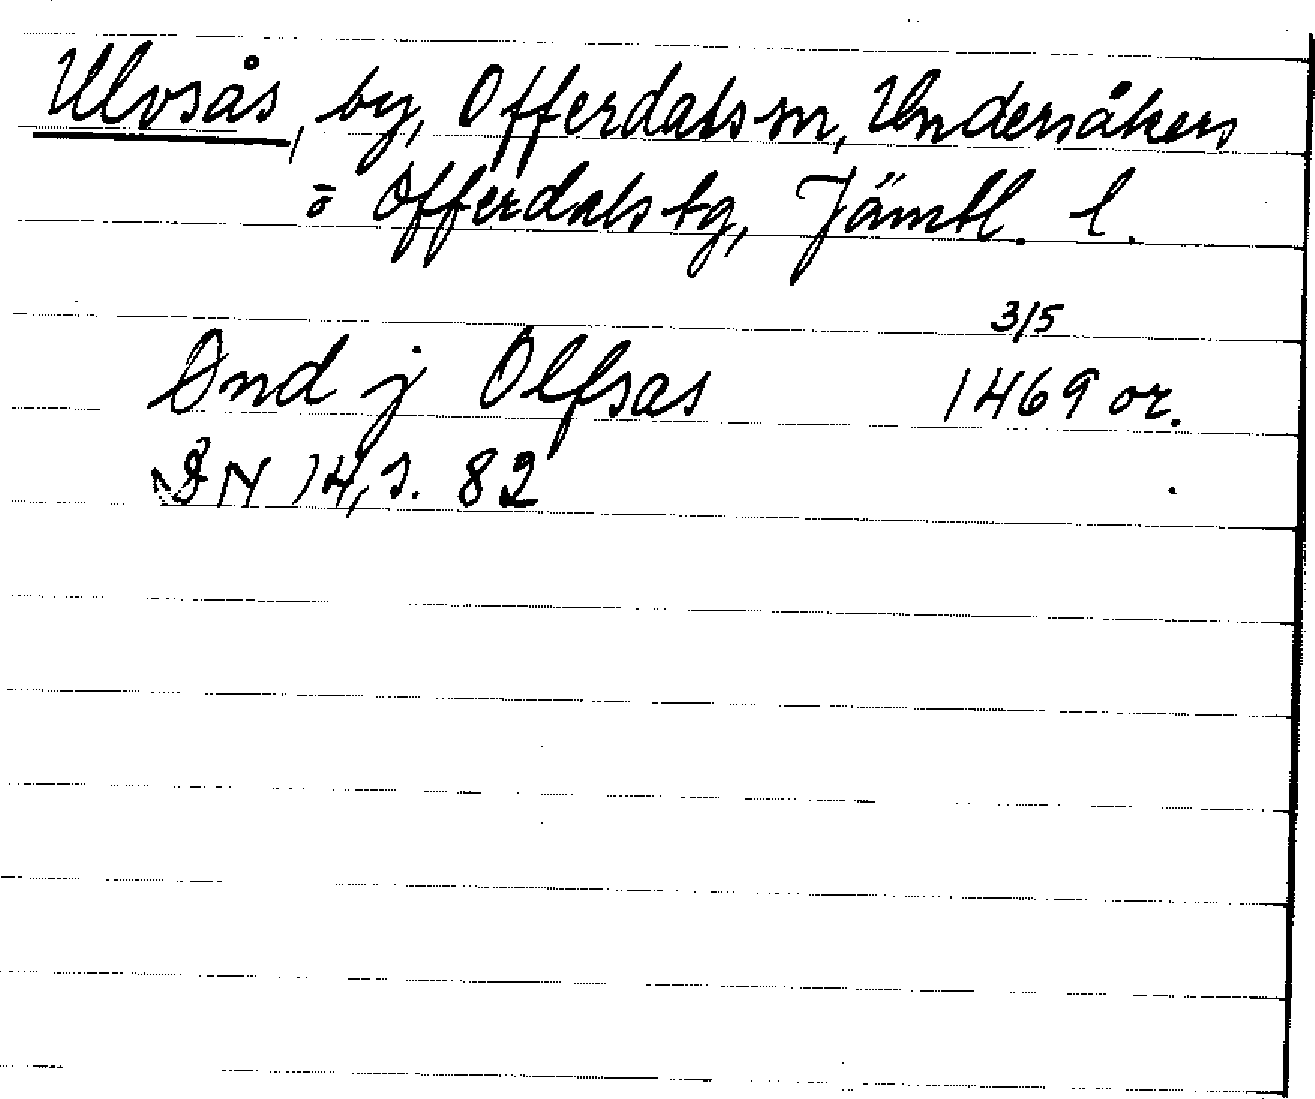 Ulvsås, by, Offerdals sn, Undersåkers
o Offerdals tg, Jämtl. l.
3/5
Önd j Olfsas 1469 or.
DN 14, s. 82